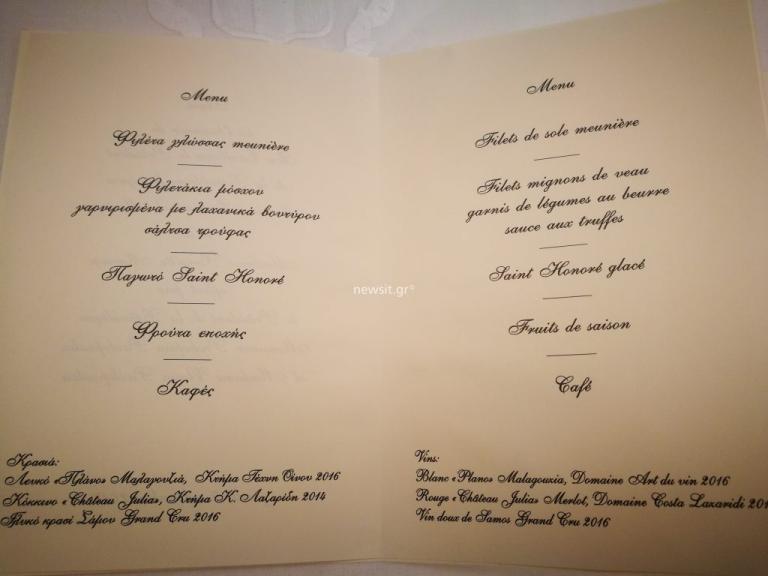 Menu
Φιλέτα γλώσσας meunière
Φιλετάκια μόσχου
γαρνιρισμένα με λαχανικά βουτύρου
σάλτσα τρούφας
Παγωτό Saint Honoré
Φρούτα εποχής
Καφές
Κρασιά:
Λευκό «Πλάνο» Μαλαγουζιά, Κτήμα Τέχνη Οίνου 2016
Κόκκινο «Château Julia», Κτήμα Κ. Λαζαρίδη 2014
Γλυκό κρασί Σάμου Grand Cru 2016
Menu
Filets de sole meunière
Filets mignons de veau
garnis de légumes au beurre
sauce aux truffes
Saint Honoré glacé
Fruits de saison
Café
Vins:
Blanc «Plano» Malagouzia, Domaine Art du vin 2016
Rouge «Château Julia» Merlot, Domaine Costa Lazaridi
Vin doux de Samos Grand Cru 2016
newsit.gr